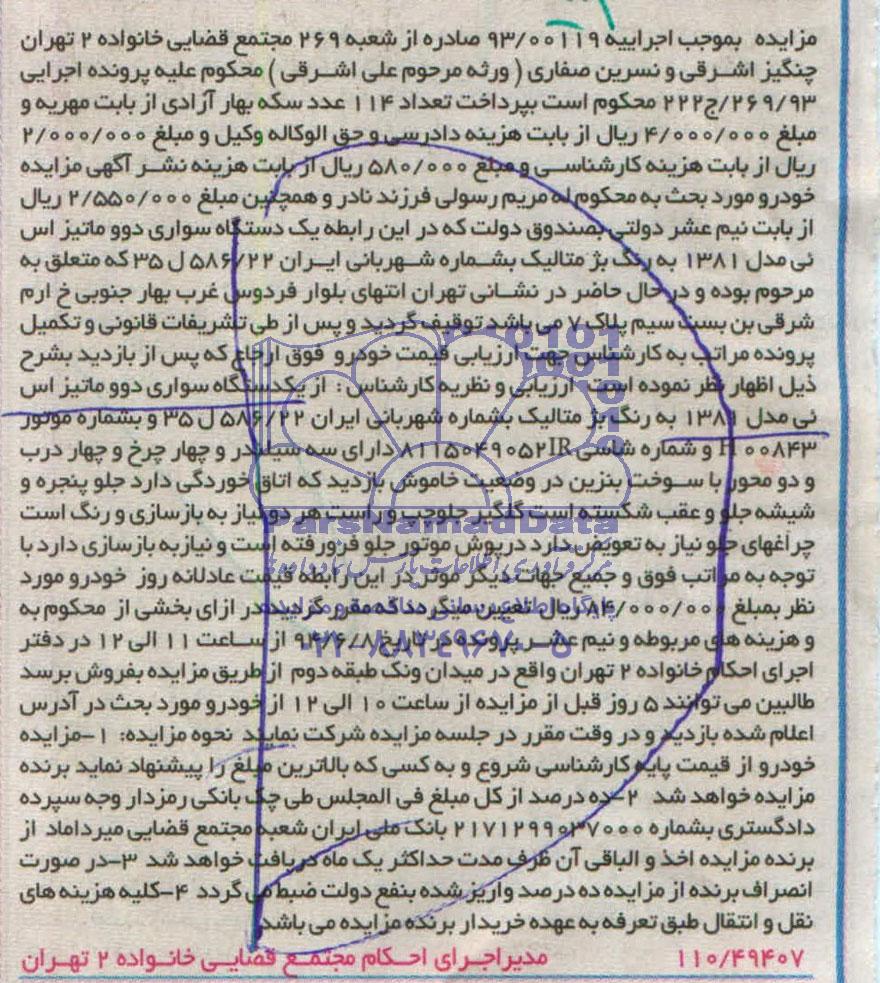 مزایده بموجب اجراییه ۹۳/۰۰۱۱۹ صادره از شعبه ۲۶۹ مجتمع قضایی خانواده ۲ تهران
چنگیز اشرقی و نسرین صفاری ( ورثه مرحوم علی اشرقی ) محکوم علیه پرونده اجرایی
۲۲۲ج/۲۶۹/۹۳ محکوم است بپرداخت تعداد ۱۱۴ عدد سکه بهار آزادی از بابت مهریه و
مبلغ ۴/۰۰۰/۰۰۰ ریال از بابت هزینه دادرسی و حق الوکاله وکیل و مبلغ ۲/۰۰۰/۰۰۰
ریال از بابت هزینه کارشناسی و مبلغ ۵۸۰/۰۰۰ ریال از بابت هزینه نشر آگهی مزایده
خودرو مورد بحث به محکوم له مریم رسولی فرزند نادر و همچنین مبلغ ۲/۵۵۰/۰۰۰ ریال
از بابت نیم عشر دولتی بصندوق دولت که در این رابطه یک دستگاه سواری دوو ماتیز اس
ئی مدل ۱۳۸۱ به رنگ بژ متالیک بشماره شهربانی ایران ۵۸۶/۲۲ ل ۳۵ که متعلق به
مرحوم بوده و در حال حاضر در نشانی تهران انتهای بلوار فردوس غرب بهار جنوبی خ ارم
شرقی بن بست سیم پلاک ۷ می باشد توقیف گردید و پس از طی تشریفات قانونی و تکمیل
پرونده مراتب به کارشناس جهت ارزیابی قیمت خودرو فوق ارجاع که پس از بازدید بشرح
ذیل اظهار نظر نموده است ارزیابی و نظریه کارشناس : از یکدستگاه سواری دوو ماتیز اس
ئی مدل ۱۳۸۱ به رنگ بژ متالیک بشماره شهربانی ایران ۵۸۶/۲۲ ل ۳۵ و بشماره موتور
H ۰۰۸۴۳ و شماره شاسی ۸۱۱۵۰۴۹۰۵۲IR دارای سه سیلندر و چهار چرخ و چهار درب
و دو محور با سوخت بنزین در وضعیت خاموش بازدید که اتاق خوردگی دارد جلو پنجره و
شیشه جلو و عقب شکسته است گلگیر جلوچپ و راست هر دو نیاز به بازسازی و رنگ است
چراغهای جلو نیاز به تعویض دارد درپوش موتور جلو فرورفته است و نیاز به بازسازی دارد با
توجه به مراتب فوق و جمیع جهات دیگر موثر در این رابطه قیمت عادلانه روز خودرو مورد
نظر بمبلغ ۸۴/۰۰۰/۰۰۰ ریال تعیین میگردد که مقرر گردیده در ازای بخشی از محکوم به
و هزینه های مربوطه و نیم عشر پرونده در تاریخ ۹۴/۶/۸ از ساعت ۱۱ الی ۱۲ در دفتر
اجرای احکام خانواده ۲ تهران واقع در میدان ونک طبقه دوم از طریق مزایده بفروش برسد
طالبین می توانند ۵ روز قبل از مزایده از ساعت ۱۰ الی ۱۲ از خودرو مورد بحث در آدرس
اعلام شده بازدید و در وقت مقرر در جلسه مزایده شرکت نمایند نحوه مزایده: ۱-مزایده
خودرو از قیمت پایه کارشناسی شروع و به کسی که بالاترین مبلغ را پیشنهاد نماید برنده
مزایده خواهد شد ۲-ده درصد از کل مبلغ فی المجلس طی چک بانکی رمزدار وجه سپرده
دادگستری بشماره ۲۱۷۱۲۹۹۰۳۷۰۰۰ بانک ملی ایران شعبه مجتمع قضایی میرداماد از
برنده مزایده اخذ و الباقی آن ظرف مدت حداکثر یک ماه دریافت خواهد شد ۳-در صورت
انصراف برنده از مزایده ده درصد واریز شده بنفع دولت ضبط می گردد ۴-کلیه هزینه های
نقل و انتقال طبق تعرفه به عهده خریدار برنده مزایده می باشد
۱۱۰/۴۹۴۰۷ مدیر اجرای احکام مجتمع قضایی خانواده ۲ تهران
ParsNamadData